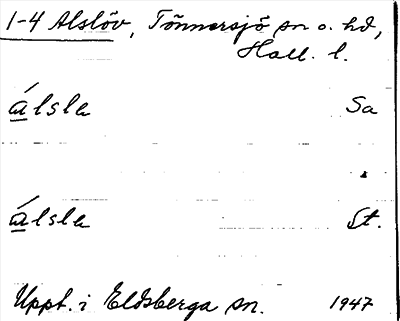 1-4 Alslöv, Tönnersjö sn o. hd,
Hall. l.
álsla Sa
álsla St.
Uppt. i Eldsberga sn. 1947